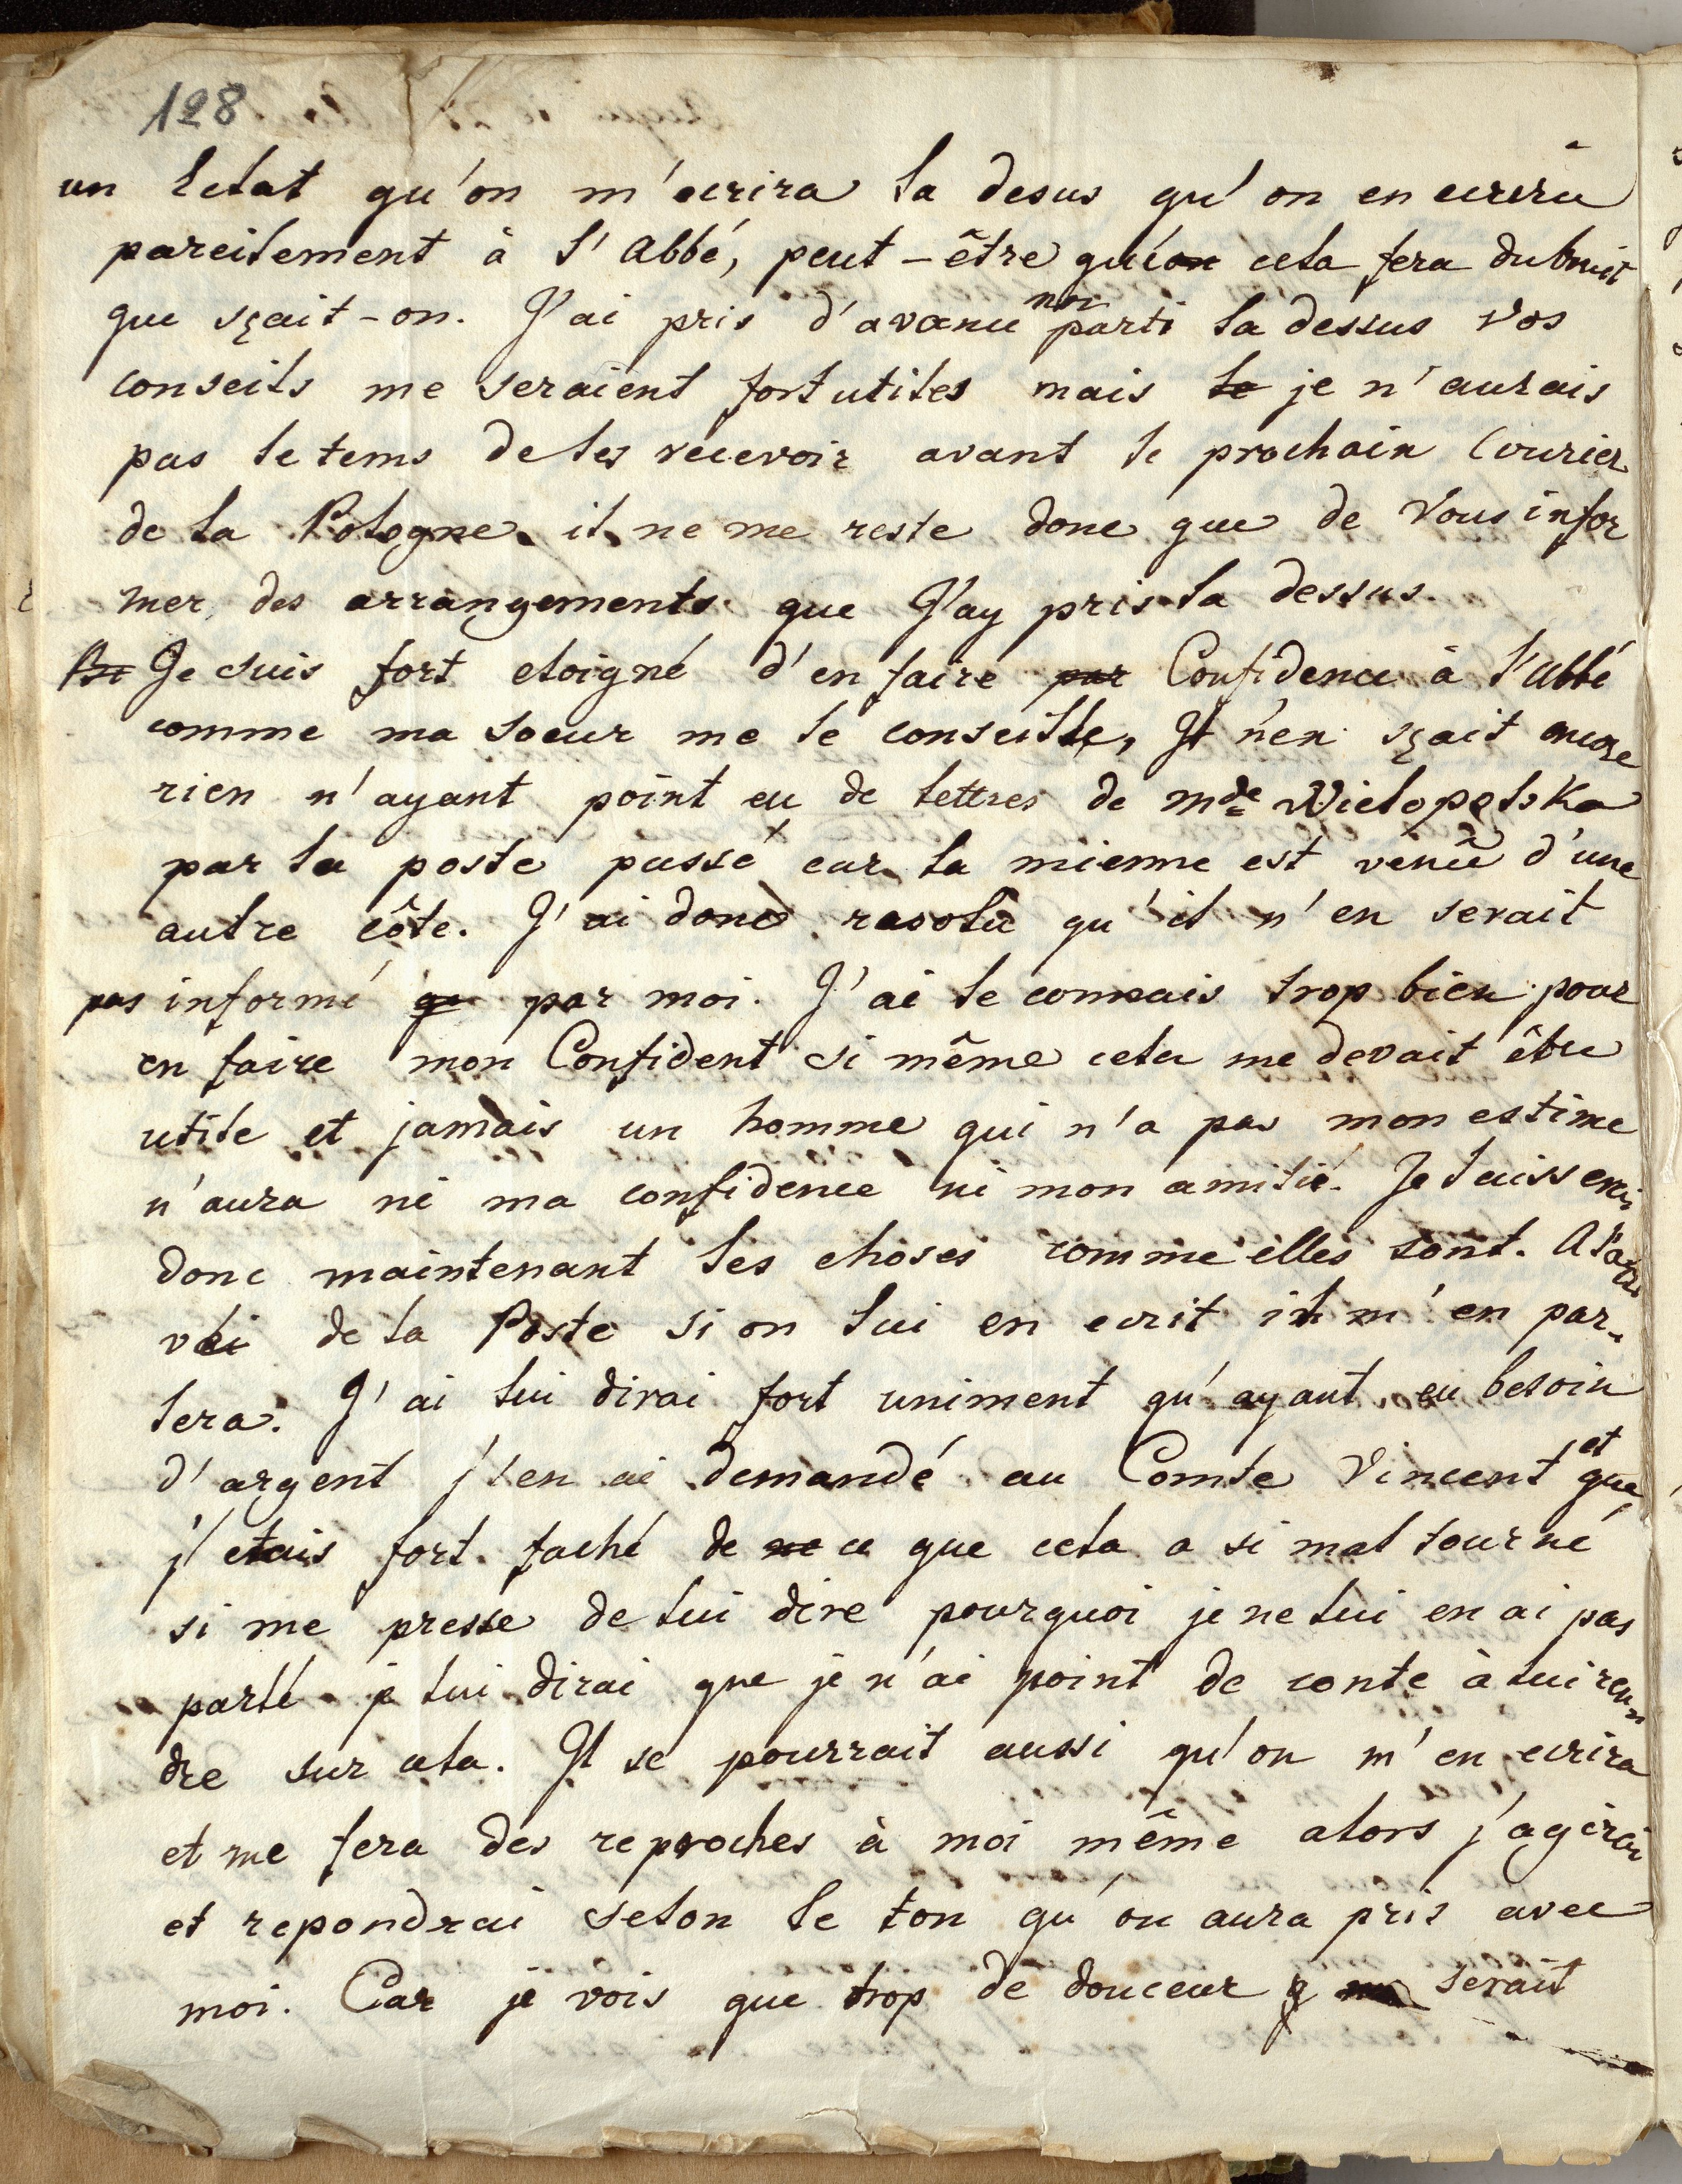 128
un Eclat qu'on m'ecrira la desus qu'on en ecrira
pareilement à l'Abbé, peut-être qu'on cela fera du bruit
que sçait-on. J'ai pris d'avance mon parti la dessus vos
conseils me seraient fort utiles mais le je n'aurais
pas le tems de les recevoir avant le prochain Courier
de la Pologne. il ne me reste donc que de Vous infor
mer des arrangements que J'ay pris la dessus.
Je suis fort eloigné d'en faire par Confidence à l'abbé
comme ma soeur me le conseille, Il n'en sçait encore
rien n'ayant point eu de lettres de Mde Wielopolska
par la poste passé car la mienne est venüe d'une
autre côte. J'ai donc rasolu qu'il n'en serait
pas informé qu par moi. J'ai le connais trop bien pour
en faire mon Confident si même cela me devait être
utile et jamais un homme qui n'a pas mon estime
n'aura ni ma confidence ni mon amitié. Je laisserai
donc maintenant les choses comme elles sont. A l'arri
vé de la Poste si on lui en ecrit il m'en par-
lera. J'ai lui dirai fort uniment qu'ayant eu besoin
d'argent j'en ai demandé au Comte Vincent et que
j'etais fort faché de ne ce que cela a si mal tourné
si me presse de lui dire pourquoi je ne lui en ai pas
parlé je lui dirai que je n'ai point de conte à lui ren
dre sur cela. Il se pourrait aussi qu'on m'en ecrira
et me fera des reproches à moi même alors j'agirai
et repondrai selon le ton qu'on aura pris avec
moi. Car je vois que trop de douceur serait